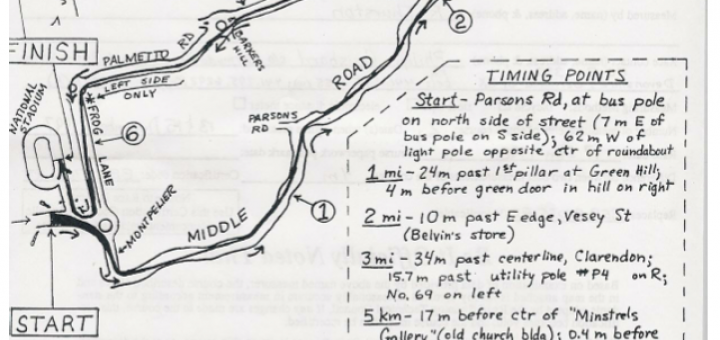 FINISH
PALMETTO RD
BARKERS HILL
LEFT SIDE ONLY
NATIONAL STADIUM
*FROG LANE
6
MONTPELIER
START
MIDDLE ROAD
PARSONS RD
1
2
TIMING POINTS
Start - Parsons Rd, at bus pole
on north side of street (7m E of
bus pole on S side); 62m W of
light pole opposite ctr of roundabout
1 mi - 24m past 1st pillar at Green Hill;
4m before green door in hill on right
2 mi - 10m past E edge, Vesey St
(Belvin's store)
3mi - 34m past centerline, Clarendon;
15.7m past utility pole #P4 on R;
No. 69 on left
5 km - 17m before ctr of "Minstrels
Gallery" (old church bldg); 0.4m before